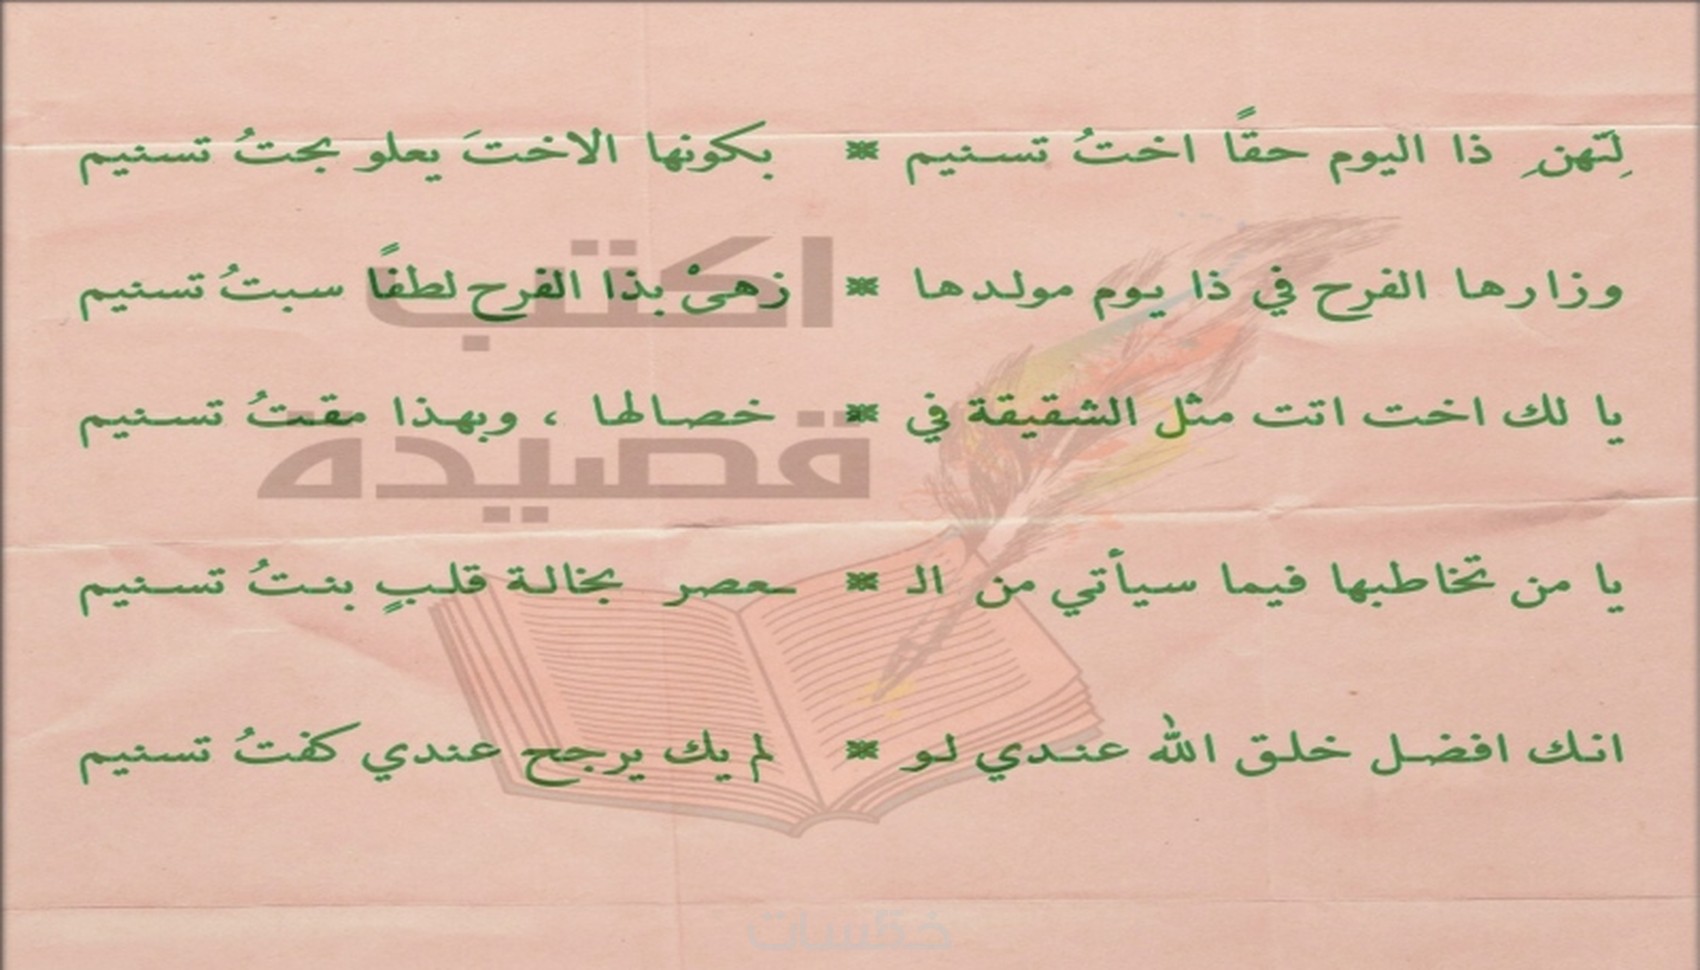 لِتَهنِ ذا اليوم حقًا اختُ تسنيم ※ بكونها الاختَ يعلو بختُ تسنيم
وزارها الفرح في ذا يوم مولدها ※ زهىْ بذا الفرح لطفًا سبتُ تسنيم
اكتب
يا لك اخت اتت مثل الشقيقة في ※ خصالها ، وبهذا مقتُ تسنيم
قصيده
يا من تخاطبها فيما سيأتي من الـ ※ ـعصر بخالة قلبٍ بنتُ تسنيم
انك افضل خلق الله عندي لو ※ لم يك يرجح عندي كفتُ تسنيم
خمسات